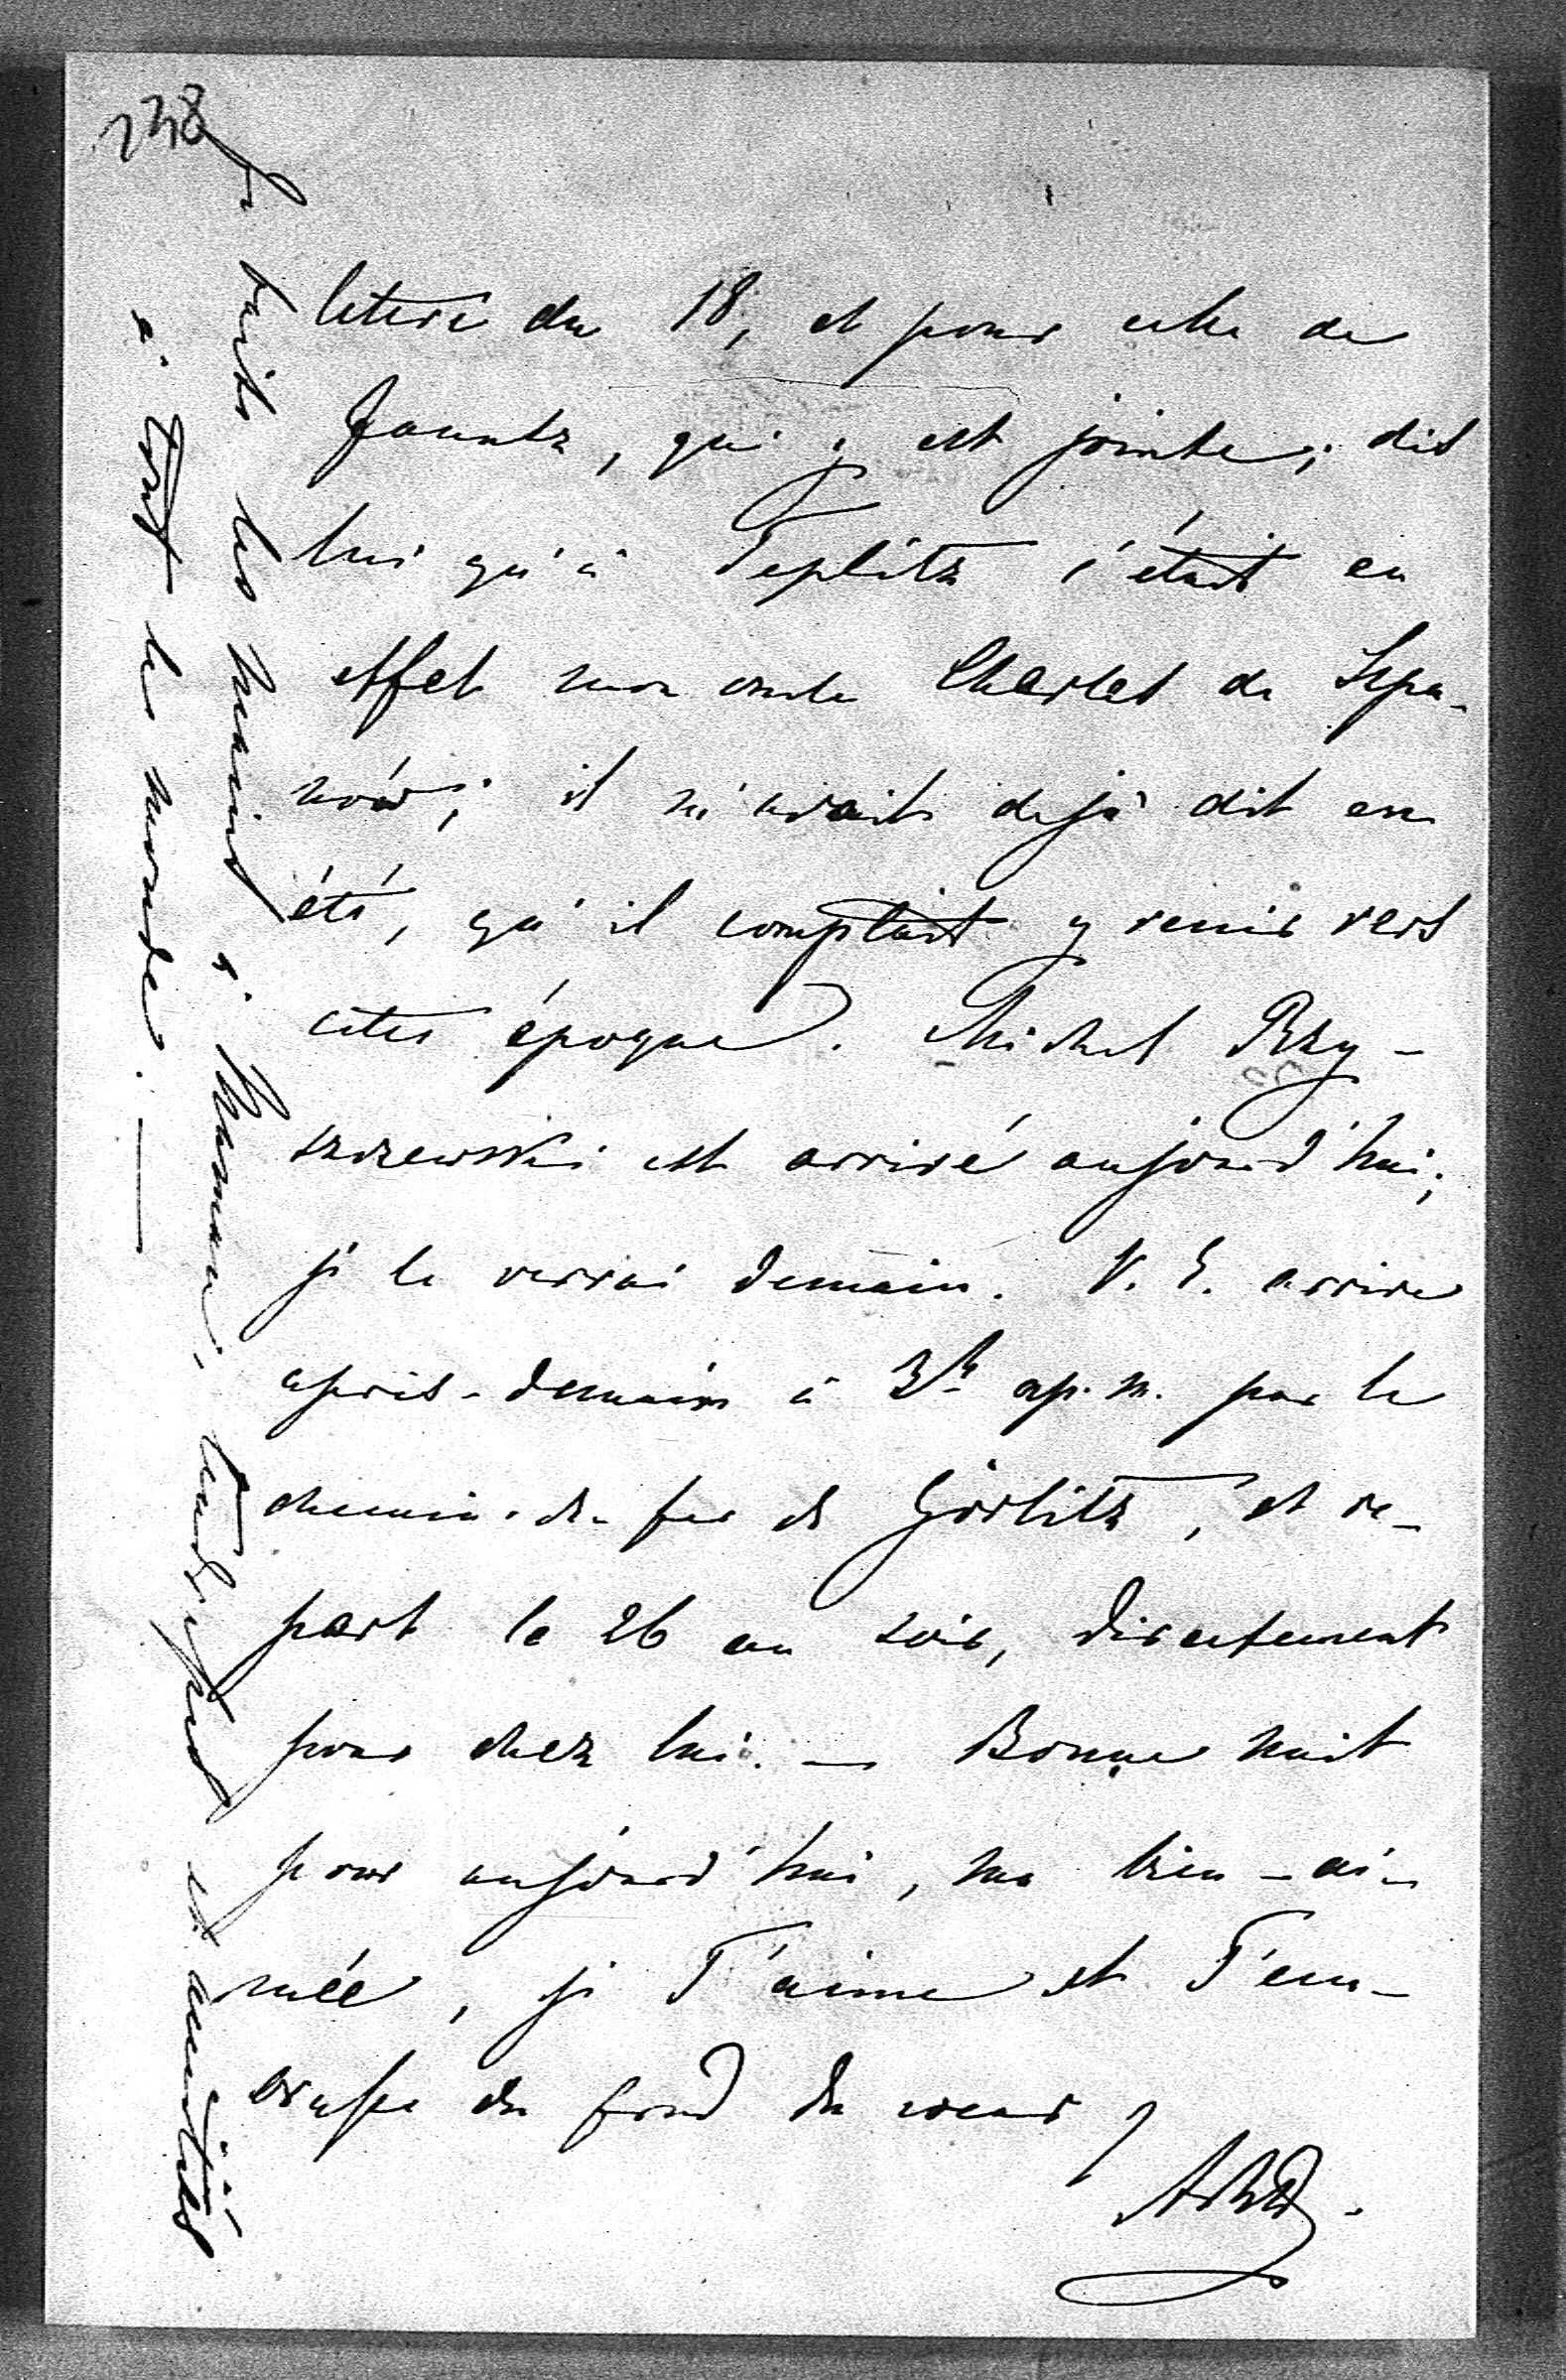 238
lettre du 18, et pour celle de
qui y est jointe; dis
lui qu'à Teplitz c'était en
effet mon oncle Charles de Sepa-
nów; il m'avait déjà dit en
été, qu'il comptait y venir vers
cette époque. Michel Rzy-
szczewski est arrivé aujourd'hui;
je le verrai demain. V. E. arrive
après-demain à 3h ap. m. par le
chemin-de-fer de Görlitz, et re-
part le 26 au soir, directement
pour chez lui. — Bonne nuit
pour aujourd'hui, ma bien-ai-
mée, je T'aime et T'em-
brasse du fond du cœur
Je baise les mains à Maman, et amitiés
à tout le monde. —